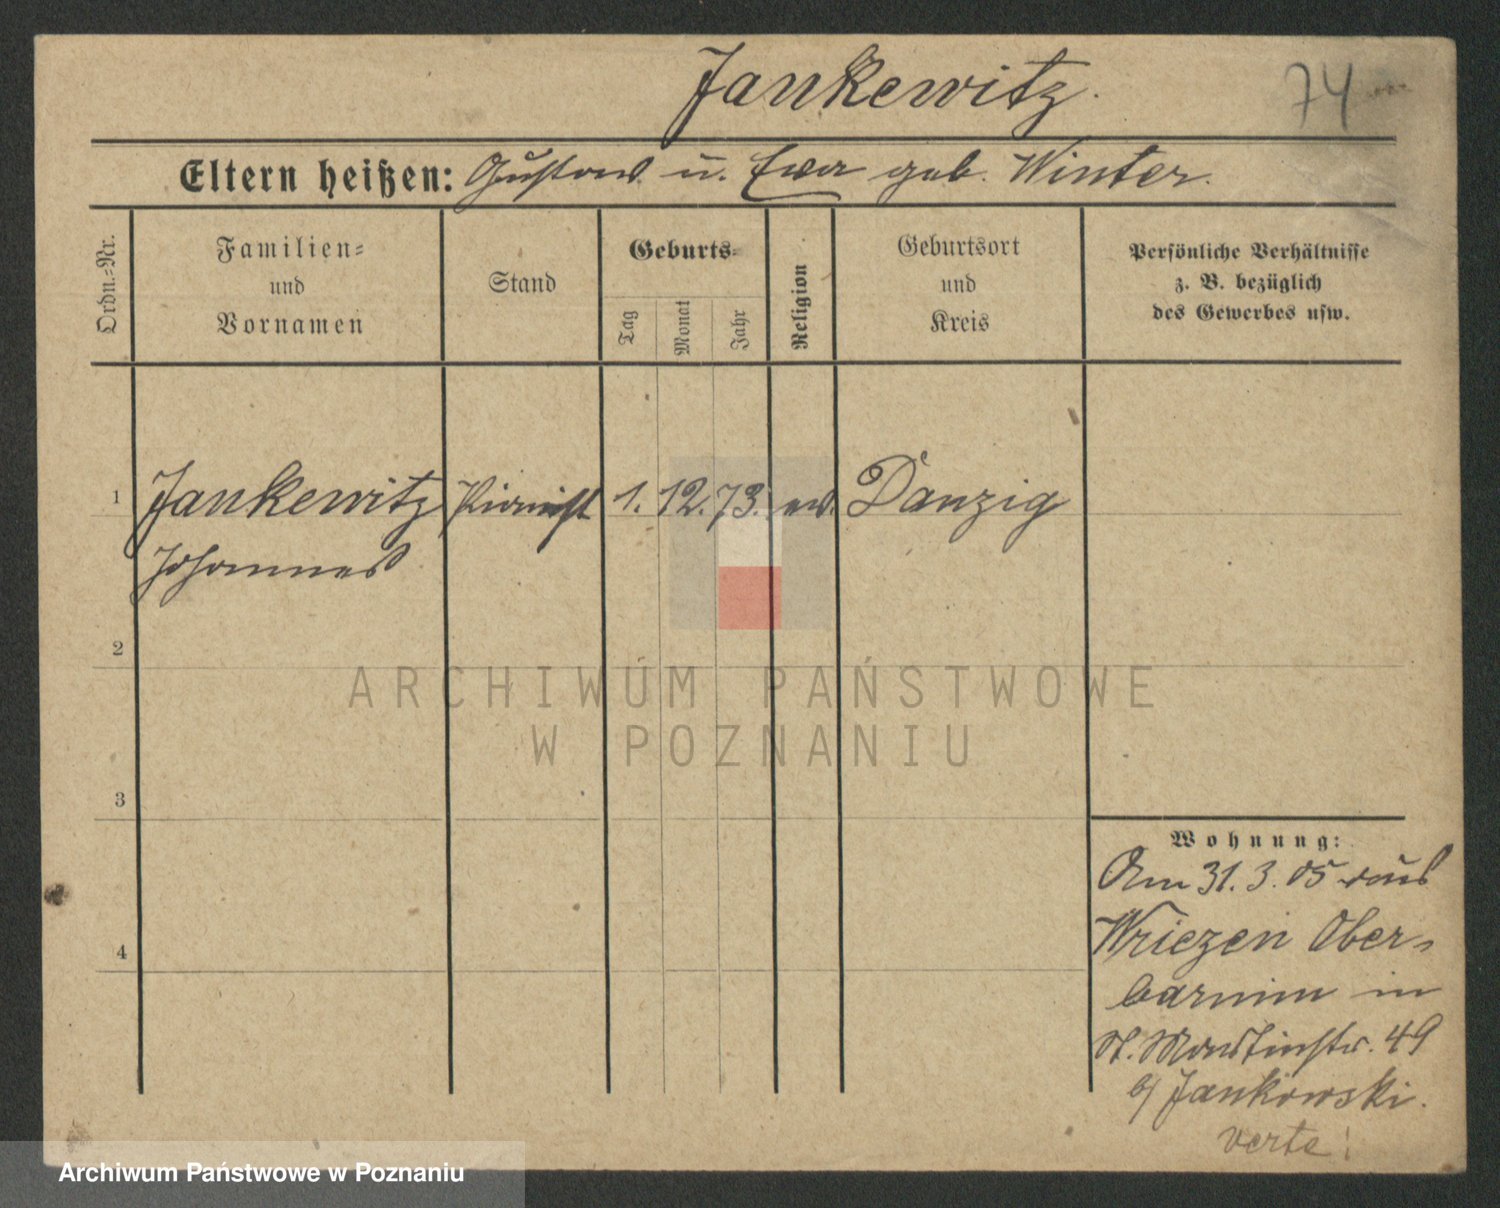 Jankewitz.
74
Eltern heißen: Gustav u. Ewa geb. Winter.
Ordn.-Nr.
Familien-
und
Vornamen
Stand
Geburts-
Tag
Monat
Jahr
Religion
Geburtsort
und
Kreis
Persönliche Verhältnisse
z. B. bezüglich
des Gewerbes usw.
1 Jankewitz Pianist 1. 12. 73. ev. Danzig
Johannes
2
3
4
Wohnung:
Am 31. 3. 05 aus
Wriezen Ober-
barnim in
St. Martinstr. 49
b/ Jankowski.
verte!
ARCHIWUM PAŃSTWOWE
W POZNANIU
Archiwum Państwowe w Poznaniu